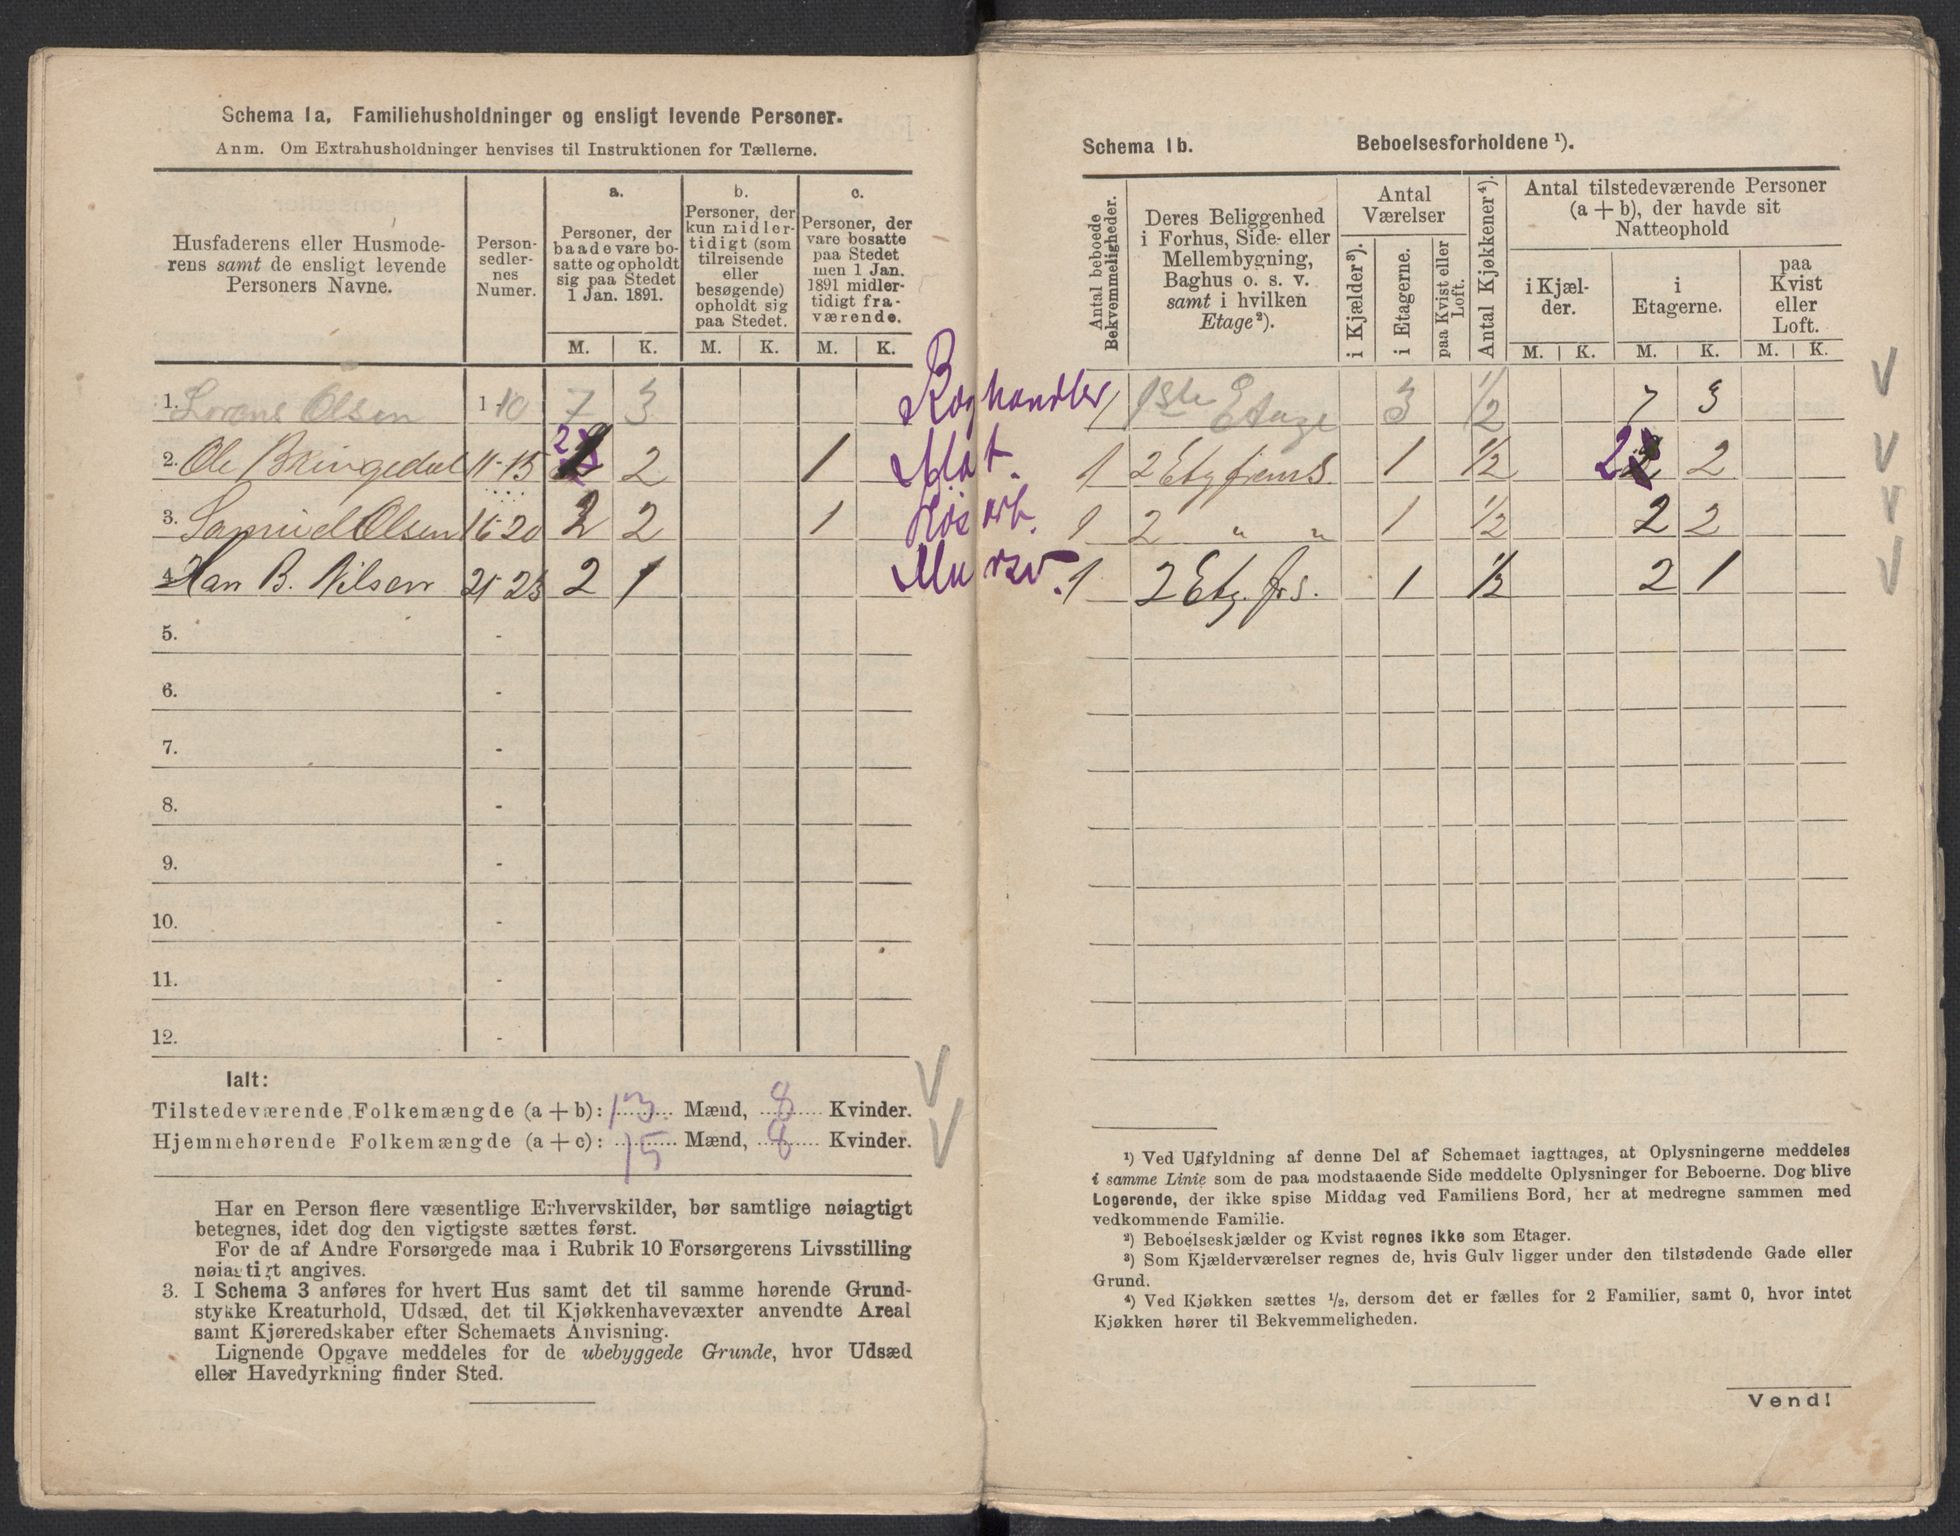 Schema 1a. Familiehusholdninger og ensligt levende Personer.
Anm. Om Extrahusholdninger henvises til Instruktionen for Tællerne.
Husfaderens eller Husmode-
rens samt de ensligt levende
Personers Navne.
Person-
sedler-
nes
Numer.
a.
Personer, der
baade vare bo-
satte og opholdt
sig paa Stedet
1 Jan. 1891.
b.
Personer, der
kun midler-
tidigt (som
tilreisende
eller
besøgende)
opholdt sig
paa Stedet.
c.
Personer, der
vare bosatte
paa Stedet
men 1 Jan.
1891 midler-
tidigt fra-
værende.
M. K. M. K. M. K.
1. Lorens Olsen 1-10 7 3 Boghandler
2. Ole Bringedal 11-15 2 2 1 Mat.
3. Samuel Olsen 16-20 2 2 1 arb.
4. Han B. Nilsen 21-23 2 1 Mursv.
5. -
6. -
7. -
8. -
9. -
10. -
11. -
12. -
Ialt:
Tilstedeværende Folkemængde (a + b): 13 Mænd, 8 Kvinder.
Hjemmehørende Folkemængde (a + c): 15 Mænd, 8 Kvinder.
Har en Person flere væsentlige Erhvervskilder, bør samtlige nøiagtigt
betegnes, idet dog den vigtigste sættes først.
For de af Andre Forsørgede maa i Rubrik 10 Forsørgerens Livsstilling
nøiagtigt angives.
3. I Schema 3 anføres for hvert Hus samt det til samme hørende Grund-
stykke Kreaturhold, Udsæd, det til Kjøkkenhavevæxter anvendte Areal
samt Kjøreredskaber efter Schemaets Anvisning.
Lignende Opgave meddeles for de ubebyggede Grunde, hvor Udsæd
eller Havedyrkning finder Sted.
Schema 1b. Beboelsesforholdene ¹).
Antal beboede
Bekvemmeligheder.
Deres Beliggenhed
i Forhus, Side- eller
Mellembygning,
Baghus o. s. v.
samt i hvilken
Etage²).
Antal
Værelser
i Kjælder³).
i Etagerne.
paa Kvist eller
Loft.
Antal Kjøkkener⁴).
Antal tilstedeværende Personer
(a + b), der havde sit
Natteophold
i Kjæl-
der.
i
Etagerne.
paa
Kvist
eller
Loft.
M. K. M. K. M. K.
1 1ste Etage 3 1/2 7 3
1 2 Etg frems 1 1/2 2 2
1 2 " " 1 1/2 2 2
1 2 Etg. frs. 1 1/2 2 1
¹) Ved Udfyldning af denne Del af Schemaet iagttages, at Oplysningerne meddeles
i samme Linie som de paa modstaaende Side meddelte Oplysninger for Beboerne. Dog blive
Logerende, der ikke spise Middag ved Familiens Bord, her at medregne sammen med
vedkommende Familie.
²) Beboelseskjælder og Kvist regnes ikke som Etager.
³) Som Kjælderværelser regnes de, hvis Gulv ligger under den tilstødende Gade eller
Grund.
⁴) Ved Kjøkken sættes ½, dersom det er fælles for 2 Familier, samt 0, hvor intet
Kjøkken hører til Bekvemmeligheden.
Vend!